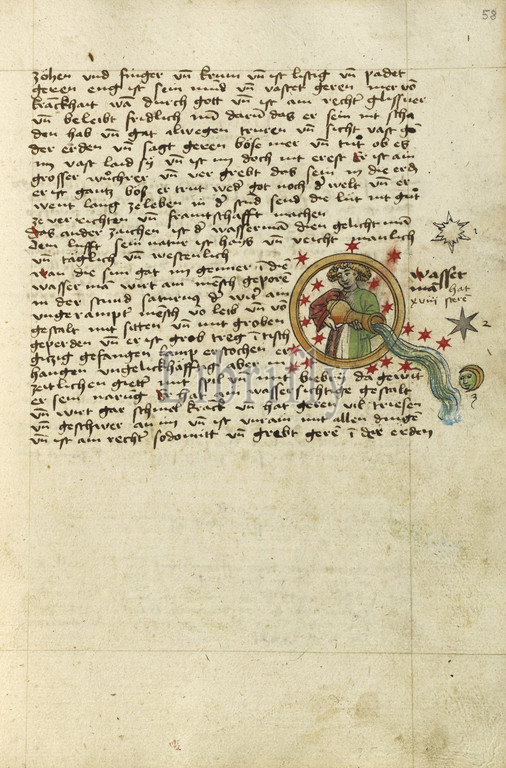 58
zöhen vnd finger vn̄ krum vn̄ ist listig vn̄ padet
geren eng ist sein mund vn̄ vastet geren mer vō
kranckhait wa durch gott vn̄ ist ain recht glissner
vn̄ beleibt fridlich nun darū das er sein nit scha
den hab vn̄ gat alwegen truren vn̄ sicht vast
der erden vn̄ sagt geren böse mer vn̄ ob es
im vast laid sy vn̄ ist im doch nit ernst Er ist ain
grosser wůchrer vn̄ ver grebt das sein in die erd
er ist gantz böß er trut wed got noch d welt vn̄ er
went lang ze leben in d stund send die lüt nit gůt
ze verrichten vn̄ frantschafft machen
Das ander zaichen ist d wasserman dem gelicht
dem lufft sein natur ist haiß vn̄ veicht manlich
vn̄ täglich vn̄ westenlich
wan die sun gat im genner ī dē
wasser mā wirt ain mēsch geporē
in der stund saturnus d wirt ain
vngerampt mēsch vō leib vn̄ vō
gestalt mit sitten vn̄ mit groben
geperden vn̄ er ist grob treg ī tisch
gitzig gefangen lamp erstochen er
hangen vngelückhafftig aber
zeitlichen
er sein wassersichtige gestalt
vn̄ wirt gar schnel kranck vn̄ hat geren vil triesen
vn̄ geschwer an im vn̄ ist vnrain mit allen dingē
vn̄ ist ain recht sodomitt vn̄ grebt gerē ī der erden
wasser
mā hat
xviii stere
1
2
3
Librifly